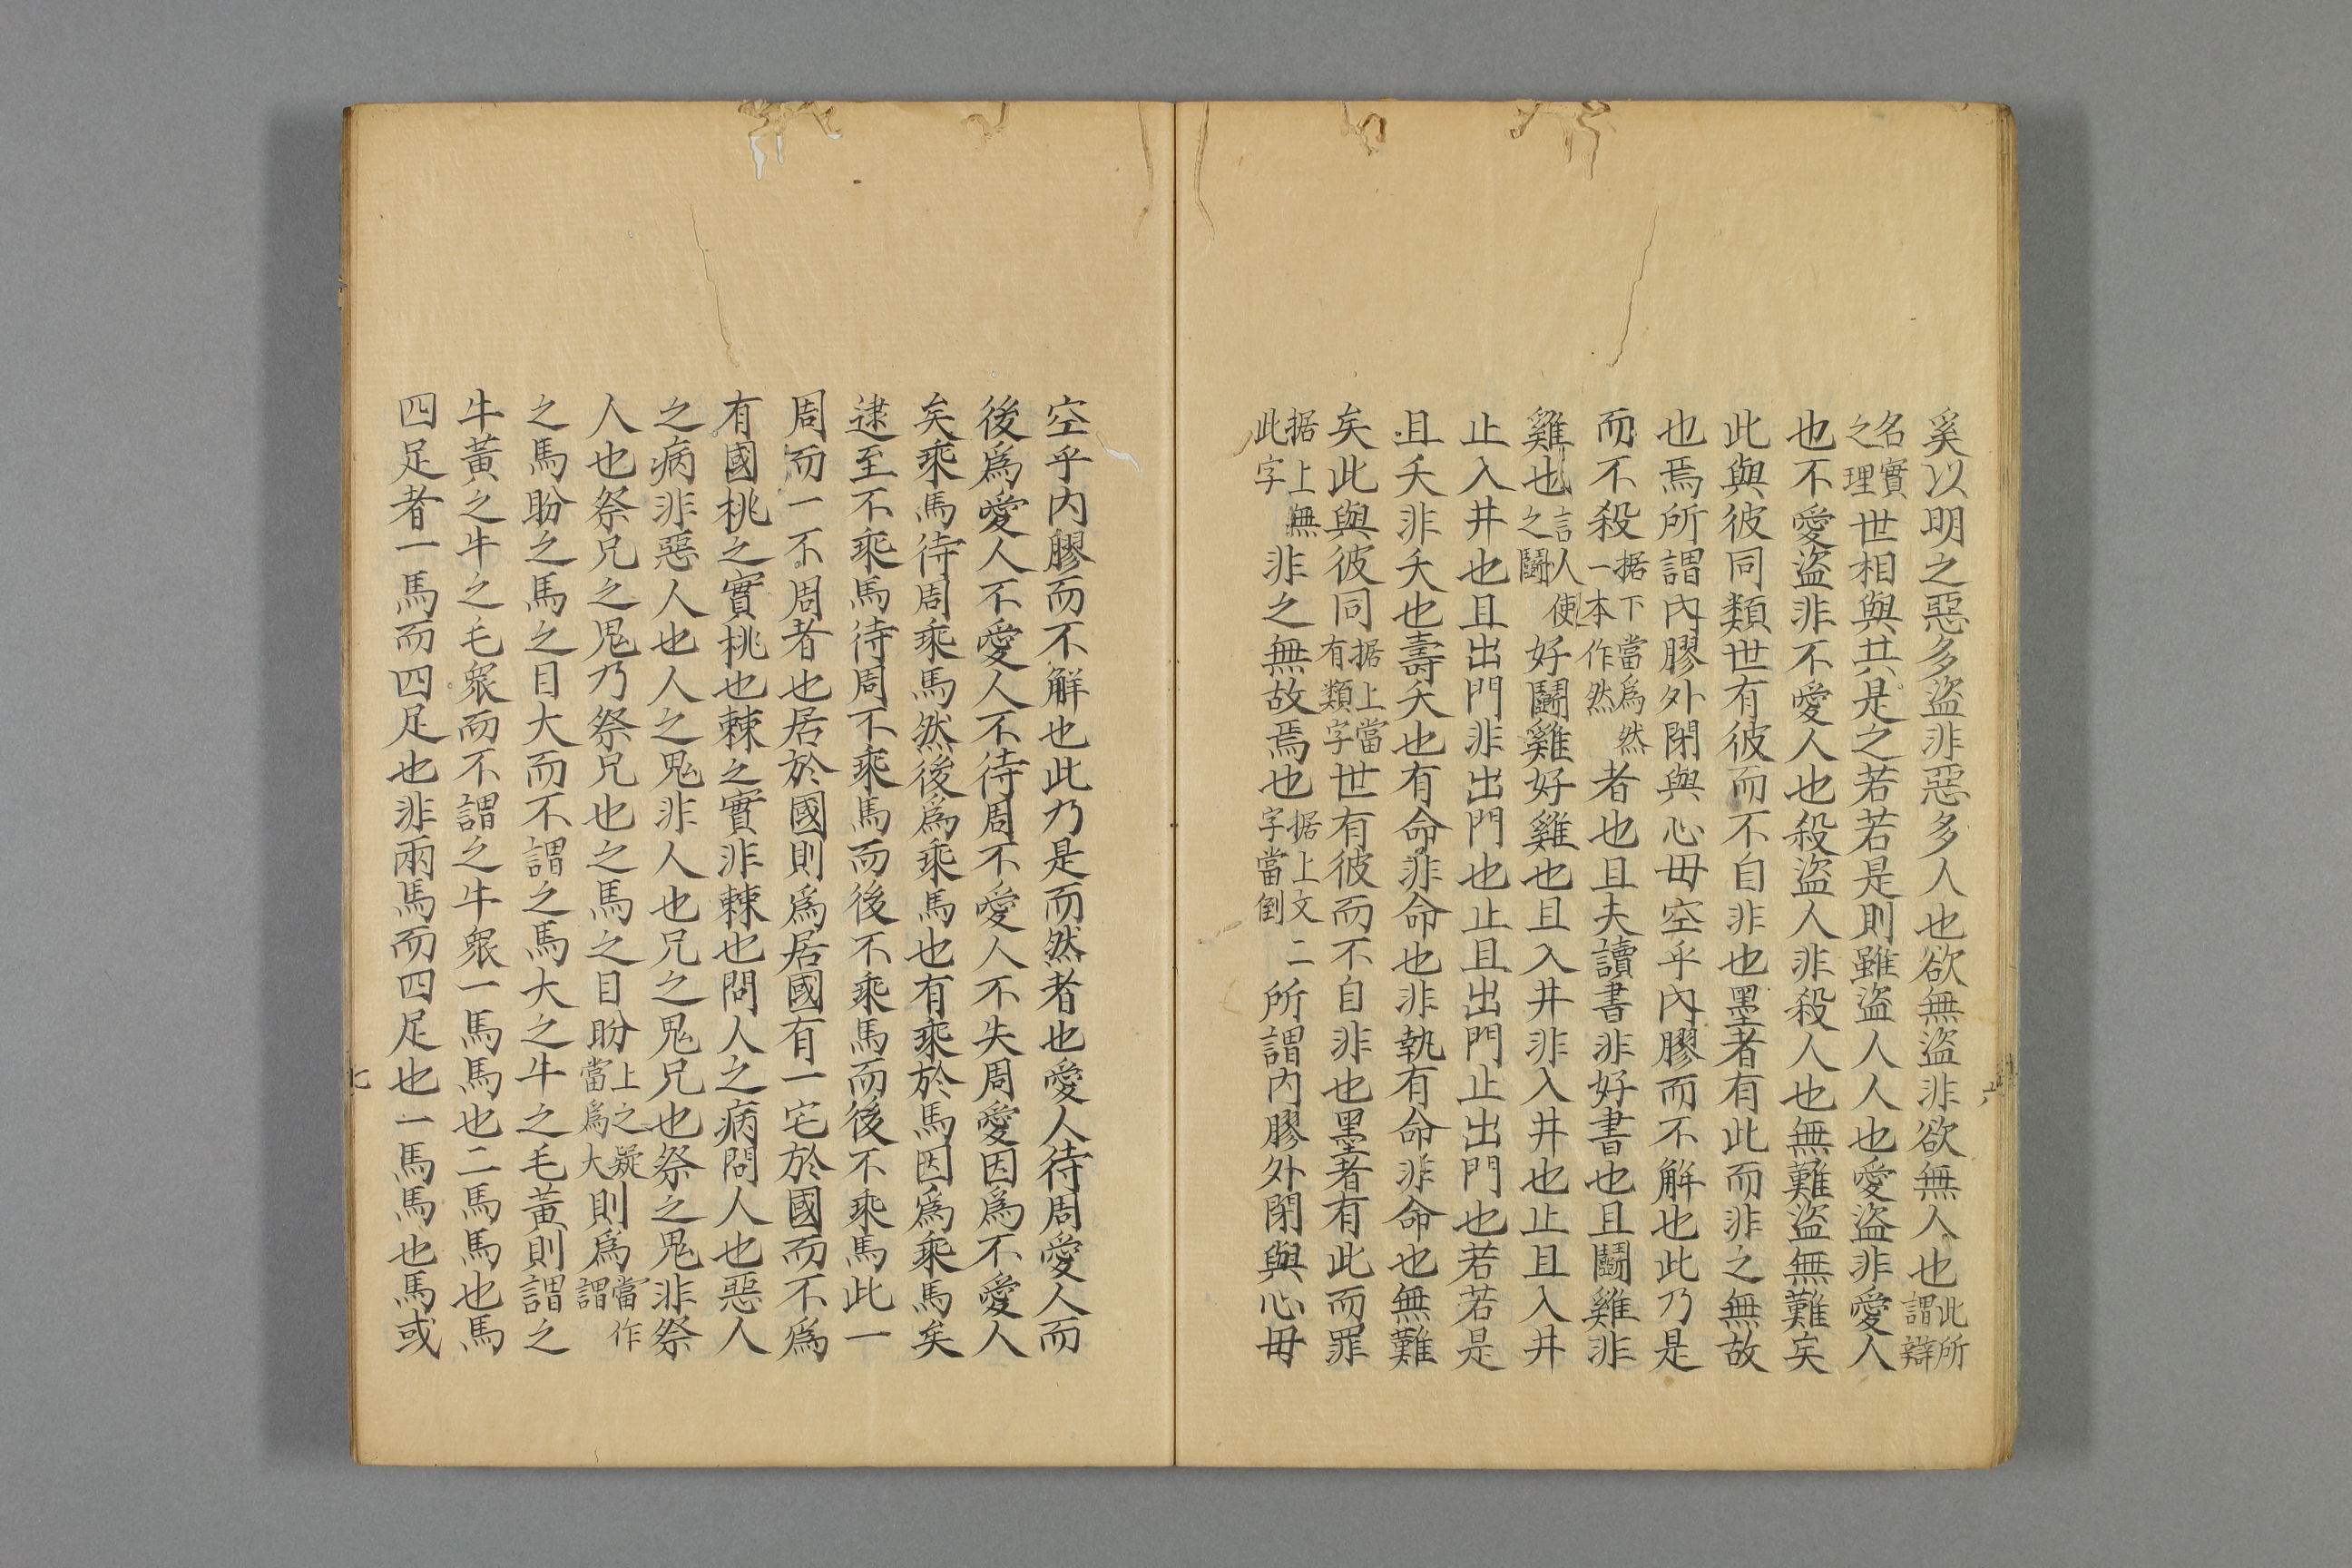 奚以明之惡多盜非惡多人也欲無盜非欲無人也此所謂辯
名實之理世相與共是之若若是則雖盜人人也愛盜非愛人
也不愛盜非不愛人也殺盜人非殺人也無難盜無難矣
此與彼同類世有彼而不自非也墨者有此而非之無故
也焉所謂內膠外閉與心毋空乎內膠而不解也此乃是
而不殺据下當爲然一本作然者也且夫讀書非好書也且鬭雞非
雞也言人使人之鬭好鬭雞好雞也且入井非入井也止且入井
止入井也且出門非出門也止且出門止出門也若若是
且夭非夭也壽夭也有命非命也非執有命非命也無難
矣此與彼同据上當有類字世有彼而不自非也墨者有此而罪
据上無此字非之無故焉也据上文二字當倒所謂內膠外閉與心毋
六
空乎內膠而不解也此乃是而然者也愛人待周愛人而
後爲愛人不愛人不待周不愛人不失周愛因爲不愛人
矣乘馬待周乘馬然後爲乘馬也有乘於馬因爲乘馬矣
逮至不乘馬待周不乘馬而後不乘馬而後不乘馬此一
周而一不周者也居於國則爲居國有一宅於國而不爲
有國桃之實桃也棘之實非棘也問人之病問人也惡人
之病非惡人也人之鬼非人也兄之鬼兄也祭之鬼非祭
人也祭兄之鬼乃祭兄也之馬之目盼上之疑當爲大則爲當作謂
之馬盼之馬之目大而不謂之馬大之牛之毛黃則謂之
牛黃之牛之毛衆而不謂之牛衆一馬馬也二馬馬也馬
四足者一馬而四足也非兩馬而四足也一馬馬也馬或
七